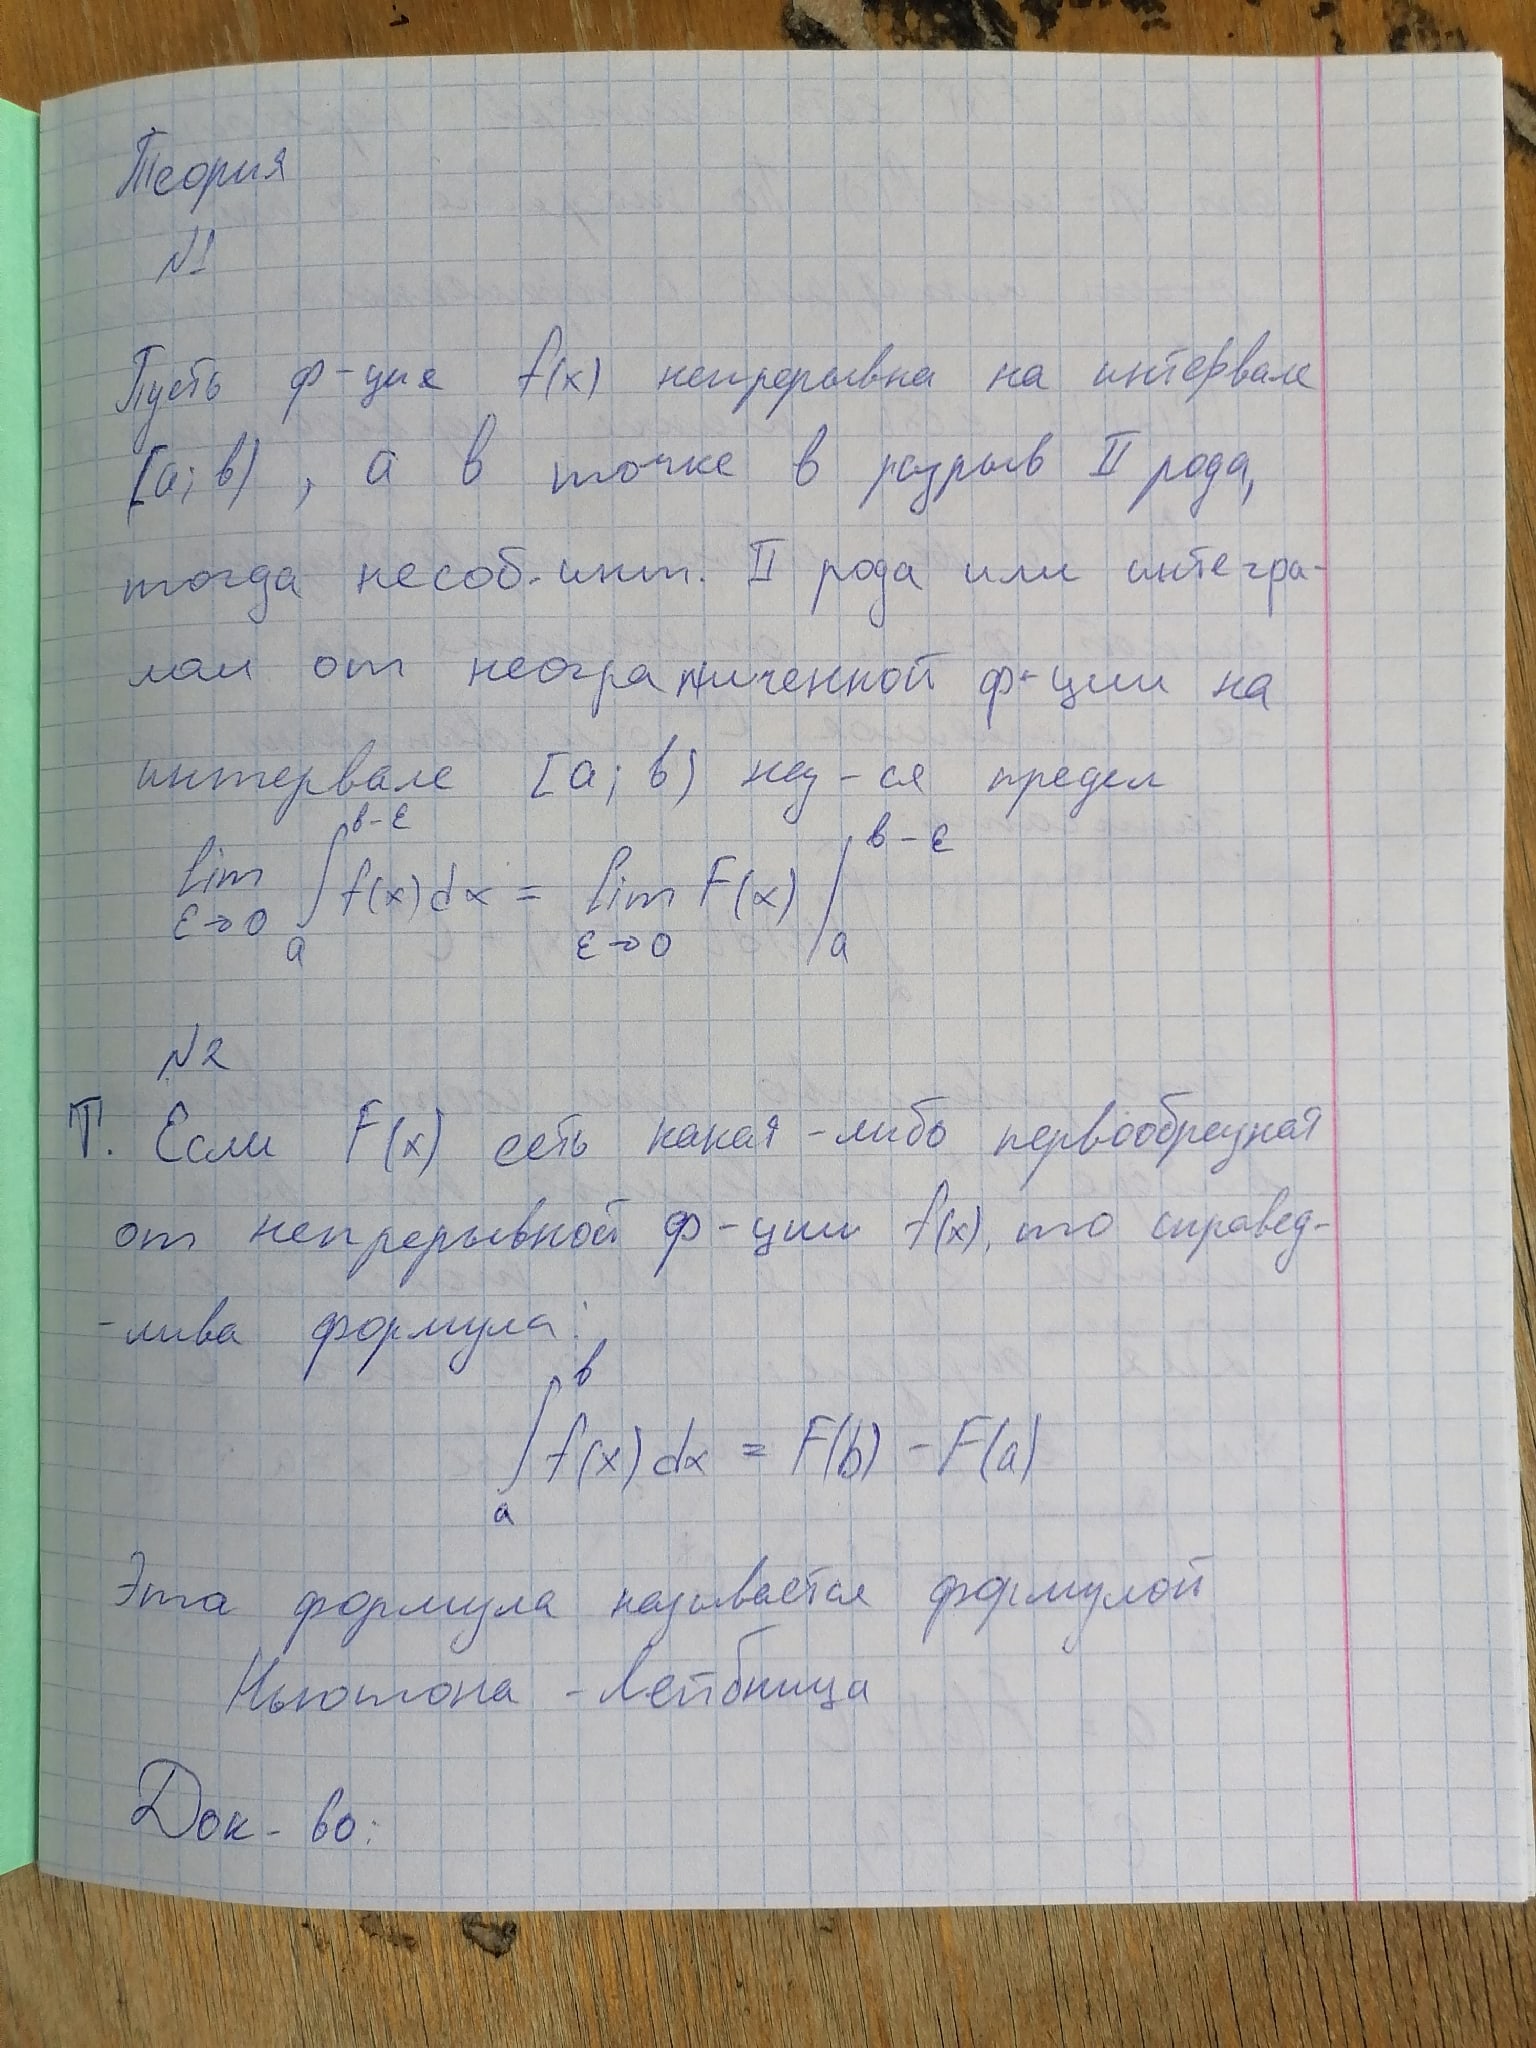 Теория
№1
Пусть ф-ция f(x) непрерывна на интервале
[a; b), а в точке b разрыв II рода,
тогда несоб. инт. II рода или интегра-
лом от неограниченной ф-ции на
интервале [a; b) наз-ся предел
lim ε→0 ∫ₐᵇ⁻ᵋ f(x)dx = lim ε→0 F(x) |ₐᵇ⁻ᵋ
№2
Т. Если F(x) есть какая-либо первообразная
от непрерывной ф-ции f(x), то справед-
-лива формула:
∫ₐᵇ f(x)dx = F(b) - F(a)
Эта формула называется формулой
Ньютона - Лейбница
Док-во: